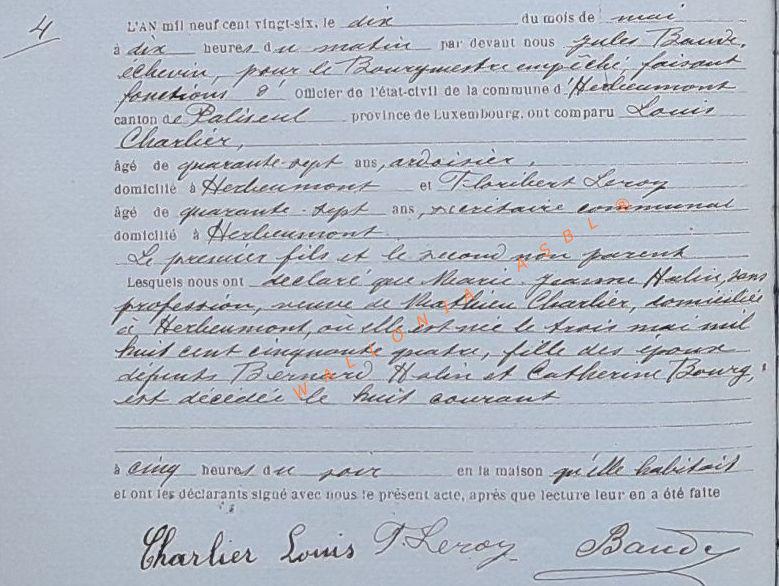 4
L'AN mil neuf cent vingt-six, le dix du mois de mai
à dix heures du matin par devant nous Jules Baudy,
échevin, pour le Bourgmestre empêché faisant
fonctions d' Officier de l'état-civil de la commune d'Herbeumont
canton de Paliseul province de Luxembourg, ont comparu Louis
Charlier,
âgé de quarante-sept ans, ardoisier,
domicilié à Herbeumont et Floribert Leroy
âgé de quarante-sept ans, secrétaire communal
domicilié à Herbeumont
Le premier fils et le second non parent
Lesquels nous ont déclaré que Marie-Jeanne Halin, sans
profession, veuve de Mathieu Charlier, domiciliée
à Herbeumont, où elle est née le trois mai mil
huit cent cinquante quatre, fille des époux
défunts Bernard Halin et Catherine Bourg,
est décédée le huit courant
à cinq heures du soir en la maison qu'elle habitait
et ont les déclarants signé avec nous le présent acte, après que lecture leur en a été faite
Charlier Louis F. Leroy Baudy
WALLONIA ASBL ®